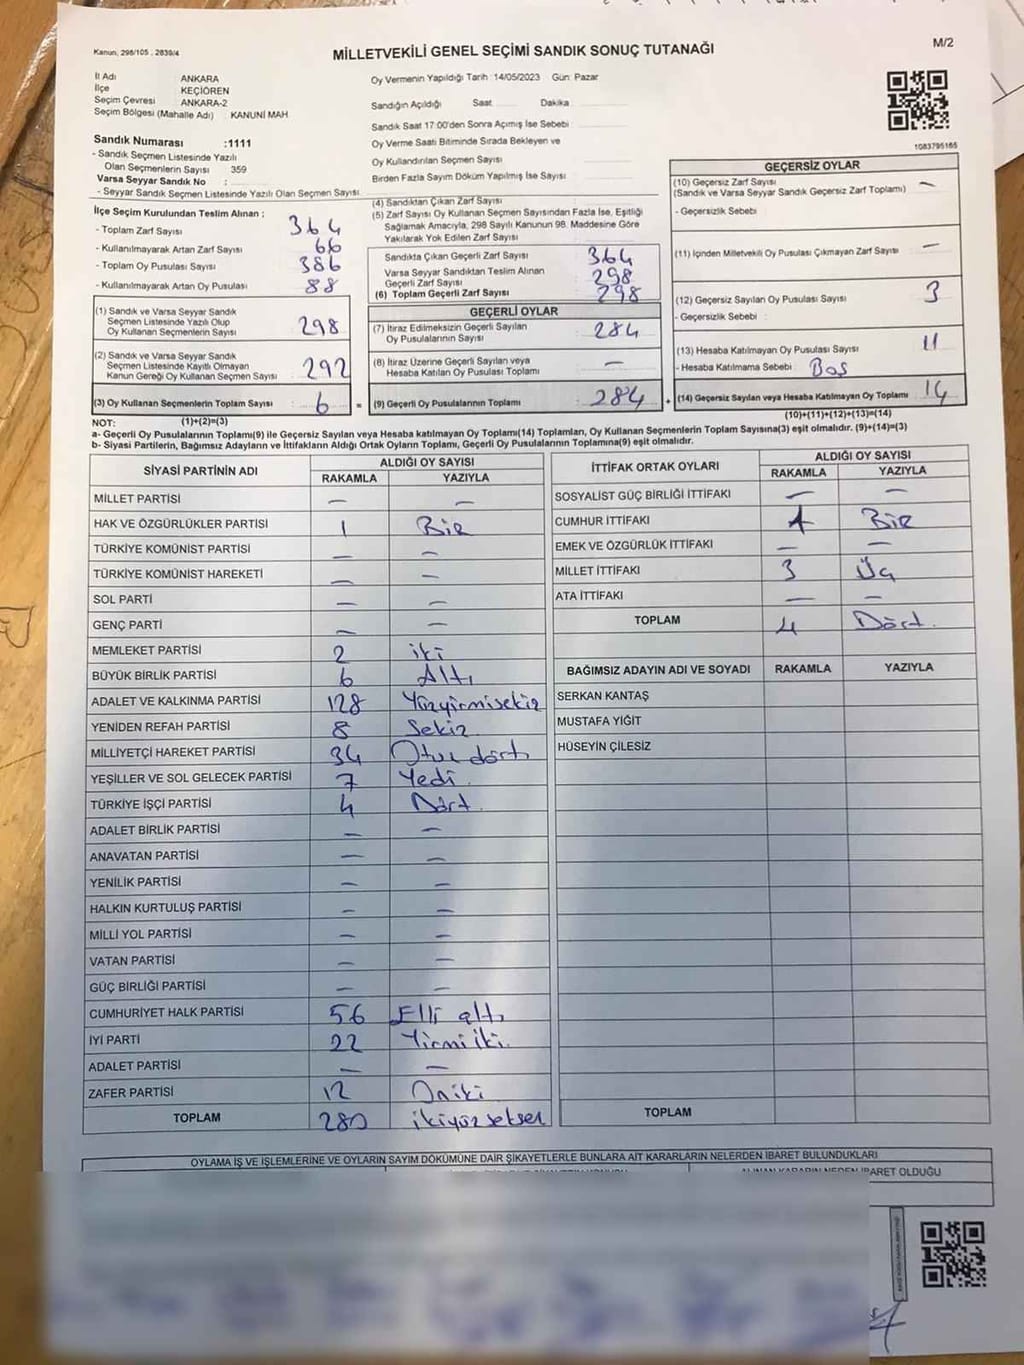 Kanun, 298/105 . 2839/4
MİLLETVEKİLİ GENEL SEÇİMİ SANDIK SONUÇ TUTANAĞI
M/2
İl Adı ANKARA
İlçe KEÇİÖREN
Seçim Çevresi ANKARA-2
Seçim Bölgesi (Mahalle Adı) : KANUNİ MAH
Sandık Numarası :1111
- Sandık Seçmen Listesinde Yazılı
Olan Seçmenlerin Sayısı : 359
Varsa Seyyar Sandık No :
- Seyyar Sandık Seçmen Listesinde Yazılı Olan Seçmen Sayısı
Oy Vermenin Yapıldığı Tarih : 14/05/2023 Gün: Pazar
Sandığın Açıldığı Saat Dakika
Sandık Saat 17:00'den Sonra Açımış İse Sebebi
Oy Verme Saati Bitiminde Sırada Bekleyen ve
Oy Kullandırılan Seçmen Sayısı
Birden Fazla Sayım Döküm Yapılmış İse Sayısı
1083795165
İlçe Seçim Kurulundan Teslim Alınan ;
- Toplam Zarf Sayısı 364
- Kullanılmayarak Artan Zarf Sayısı 66
- Toplam Oy Pusulası Sayısı 386
- Kullanılmayarak Artan Oy Pusulası 88
(1) Sandık ve Varsa Seyyar Sandık
Seçmen Listesinde Yazılı Olup
Oy Kullanan Seçmenlerin Sayısı : 298
(2) Sandık ve Varsa Seyyar Sandık
Seçmen Listesinde Kayıtlı Olmayan
Kanun Gereği Oy Kullanan Seçmen Sayısı : 292
(3) Oy Kullanan Seçmenlerin Toplam Sayısı : 6 =
(1)+(2)=(3)
(4) Sandıktan Çıkan Zarf Sayısı
(5) Zarf Sayısı Oy Kullanan Seçmen Sayısından Fazla İse, Eşitliği
Sağlamak Amacıyla, 298 Sayılı Kanunun 98. Maddesine Göre
Yakılarak Yok Edilen Zarf Sayısı
Sandıkta Çıkan Geçerli Zarf Sayısı 364
Varsa Seyyar Sandıktan Teslim Alınan
Geçerli Zarf Sayısı 298
(6) Toplam Geçerli Zarf Sayısı 298
GEÇERLİ OYLAR
(7) İtiraz Edilmeksizin Geçerli Sayılan
Oy Pusulalarının Sayısı : 284
(8) İtiraz Üzerine Geçerli Sayılan veya
Hesaba Katılan Oy Pusulası Toplamı : —
(9) Geçerli Oy Pusulalarının Toplamı : 284 +
GEÇERSİZ OYLAR
(10) Geçersiz Zarf Sayısı —
(Sandık ve Varsa Seyyar Sandık Geçersiz Zarf Toplamı)
- Geçersizlik Sebebi :
(11) İçinden Milletvekili Oy Pusulası Çıkmayan Zarf Sayısı —
(12) Geçersiz Sayılan Oy Pusulası Sayısı 3
- Geçersizlik Sebebi :
(13) Hesaba Katılmayan Oy Pusulası Sayısı 11
- Hesaba Katılmama Sebebi : Boş
(14) Geçersiz Sayılan veya Hesaba Katılmayan Oy Toplamı : 14
(10)+(11)+(12)+(13)=(14)
NOT:
a- Geçerli Oy Pusulalarının Toplamı(9) ile Geçersiz Sayılan veya Hesaba katılmayan Oy Toplamı(14) Toplamları, Oy Kullanan Seçmenlerin Toplam Sayısına(3) eşit olmalıdır. (9)+(14)=(3)
b- Siyasi Partilerin, Bağımsız Adayların ve İttifakların Aldığı Ortak Oyların Toplamı, Geçerli Oy Pusulalarının Toplamına(9) eşit olmalıdır.
SİYASİ PARTİNİN ADI ALDIĞI OY SAYISI
RAKAMLA YAZIYLA
MİLLET PARTİSİ — —
HAK VE ÖZGÜRLÜKLER PARTİSİ 1 Bir
TÜRKİYE KOMÜNİST PARTİSİ — —
TÜRKİYE KOMÜNİST HAREKETİ — —
SOL PARTİ — —
GENÇ PARTİ — —
MEMLEKET PARTİSİ 2 iki
BÜYÜK BİRLİK PARTİSİ 6 Altı
ADALET VE KALKINMA PARTİSİ 128 Yüzyirmisekiz
YENİDEN REFAH PARTİSİ 8 Sekiz
MİLLİYETÇİ HAREKET PARTİSİ 34 Otuz dört
YEŞİLLER VE SOL GELECEK PARTİSİ 7 Yedi
TÜRKİYE İŞÇİ PARTİSİ 4 Dört
ADALET BİRLİK PARTİSİ — —
ANAVATAN PARTİSİ — —
YENİLİK PARTİSİ — —
HALKIN KURTULUŞ PARTİSİ — —
MİLLİ YOL PARTİSİ — —
VATAN PARTİSİ — —
GÜÇ BİRLİĞİ PARTİSİ — —
CUMHURİYET HALK PARTİSİ 56 Elli altı
İYİ PARTİ 22 Yirmi İki
ADALET PARTİSİ — —
ZAFER PARTİSİ 12 Oniki
TOPLAM 280 ikiyüz seksen
İTTİFAK ORTAK OYLARI ALDIĞI OY SAYISI
RAKAMLA YAZIYLA
SOSYALİST GÜÇ BİRLİĞİ İTTİFAKI — —
CUMHUR İTTİFAKI 1 Bir
EMEK VE ÖZGÜRLÜK İTTİFAKI — —
MİLLET İTTİFAKI 3 Üç
ATA İTTİFAKI — —
TOPLAM 4 Dört
BAĞIMSIZ ADAYIN ADI VE SOYADI RAKAMLA YAZIYLA
SERKAN KANTAŞ
MUSTAFA YİĞİT
HÜSEYİN ÇİLESİZ
TOPLAM
OYLAMA İŞ VE İŞLEMLERİNE VE OYLARIN SAYIM DÖKÜMÜNE DAİR ŞİKAYETLERLE BUNLARA AİT KARARLARIN NELERDEN İBARET BULUNDUKLARI
ALINAN KARARIN NEDEN İBARET OLDUĞU